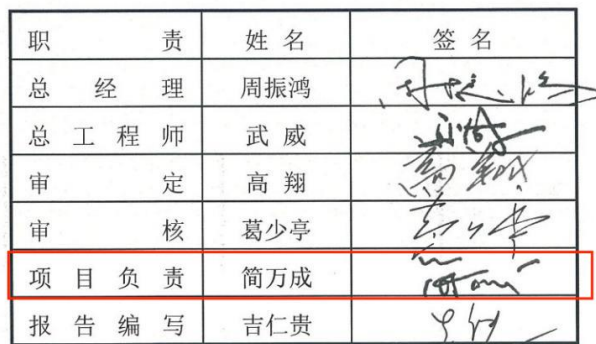 职责 姓名 签名
总经理 周振鸿
总工程师 武威
审定 高翔 高翔
审核 葛少亭
项目负责 简万成
报告编写 吉仁贵